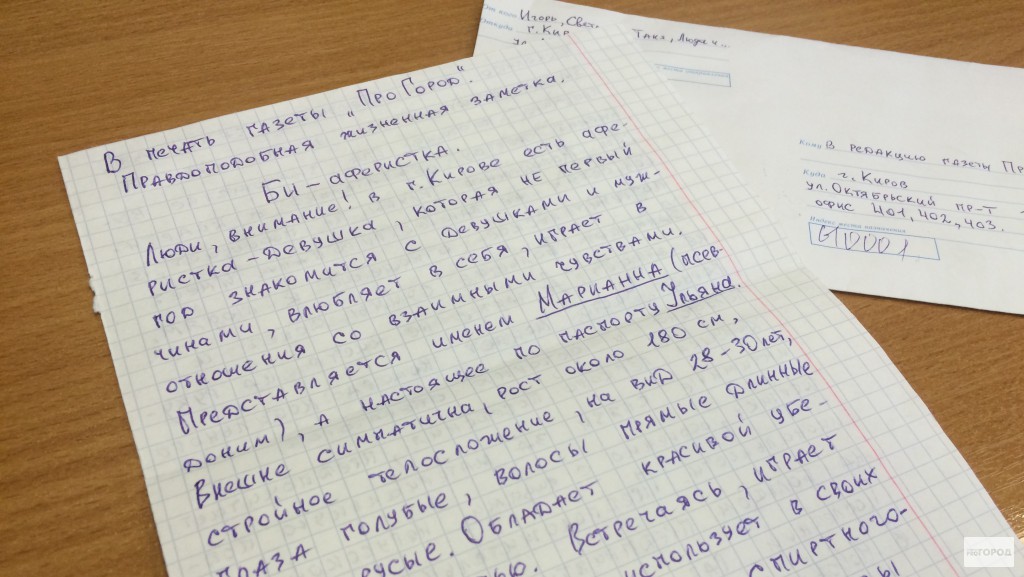 В печать газеты "Про Город".
Правдоподобная жизненная заметка.
Би-аферистка.
Люди, внимание! в г. Кирове есть афе-
ристка-девушка, которая не первый
год знакомится с девушками и муж-
чинами, влюбляет в себя, играет в
отношения со взаимными чувствами.
Представляется именем Марианна (псев-
доним), а настоящее по паспорту Ульяна.
Внешне симпатична, рост около 180 см,
стройное телосложение, на вид 28-30 лет,
глаза голубые, волосы прямые длинные
русые. Обладает красивой убе-
Встречаясь, играет
использует в своих
спиртного-
Игорь,
г. Кир
ул.
Таня, Люда
Кому В редакцию газеты Пр
Куда г. Киров
ул. Октябрьский пр-т
офис 401, 402, 403.
Индекс места назначения
610001
ПРОГОРОД